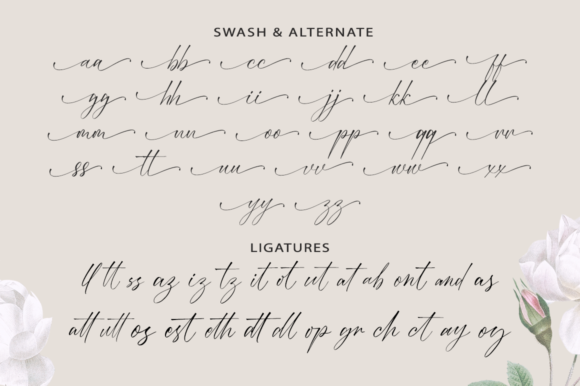 SWASH & ALTERNATE
aa bb cc dd ee ff
gg hh ii jj kk ll
mm nn oo pp qq rr
ss tt uu vv ww xx
yy zz
LIGATURES
ll tt ss az iz tz it ot ut at ab ont and as
att utt os est eth dt dl op yr ch ct ay oy